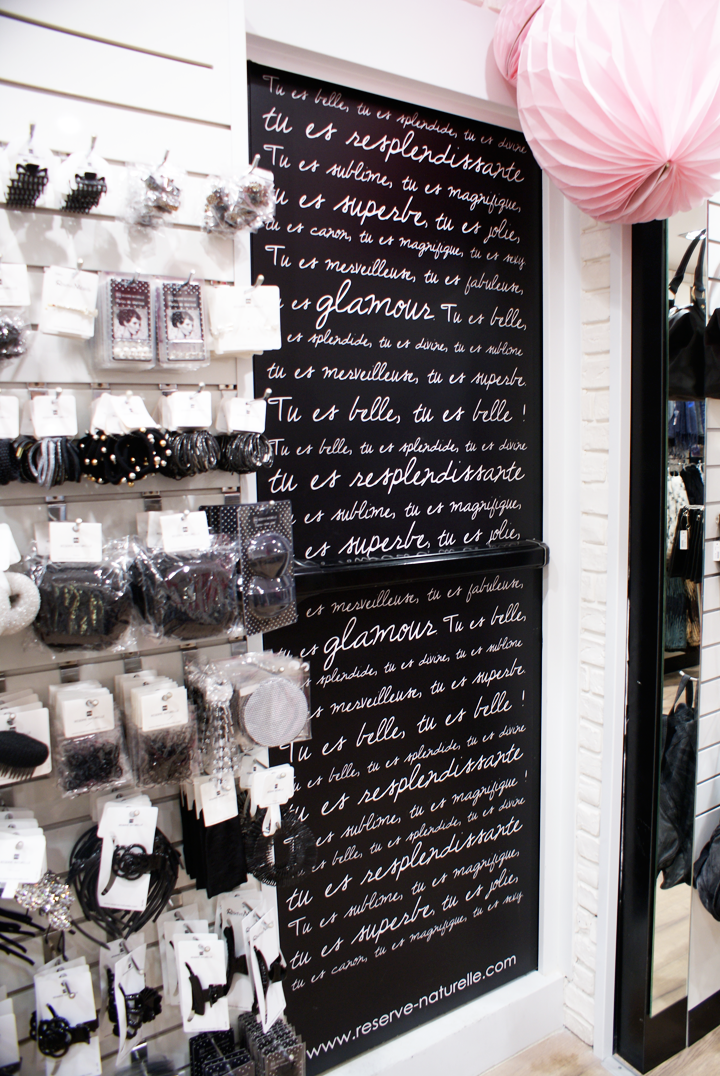 Tu es belle, tu es splendide, tu es divine
tu es resplendissante
Tu es sublime, tu es magnifique,
tu es superbe, tu es jolie,
tu es canon, tu es magnifique, tu es sexy
Tu es merveilleuse, tu es fabuleuse,
es glamour Tu es belle,
es splendide, tu es divine, tu es sublime
tu es merveilleuse, tu es superbe.
Tu es belle, tu es belle !
Tu es belle, tu es splendide, tu es divine
tu es resplendissante
es sublime, tu es magnifique,
es superbe, tu es jolie,
es merveilleuse, tu es fabuleuse,
es glamour Tu es belle,
splendide, tu es divine, tu es sublime
es merveilleuse, tu es superbe.
Tu es belle, tu es belle !
es belle, tu es splendide, tu es divine
tu es resplendissante
es sublime, tu es magnifique !
es belle, tu es splendide, tu es divine
tu es resplendissante
Tu es sublime, tu es magnifique,
tu es superbe, tu es jolie,
tu es canon, tu es magnifique, tu es sexy
www.reserve-naturelle.com